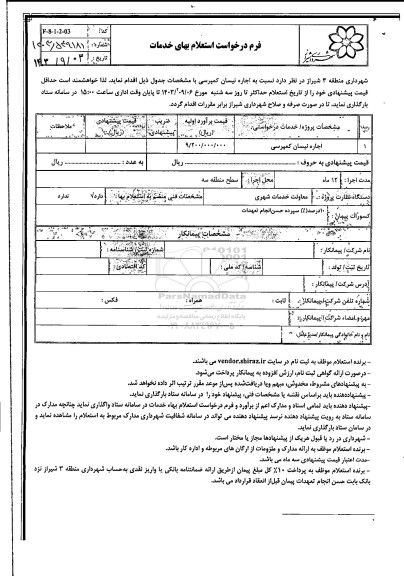 فرم درخواست استعلام بهای خدمات
کد: F-8-1-2-03
شماره:
تاریخ: ۱۴۰۳/۰۹/۰۳
شهرداری منطقه ۳ شیراز در نظر دارد نسبت به اجاره نیسان کمپرسی با مشخصات جدول ذیل اقدام نماید. لذا خواهشمند است حداقل
قیمت پیشنهادی خود را از تاریخ استعلام حداکثر تا روز سه شنبه مورخ ۱۴۰۳/۰۹/۰۶ تا پایان وقت اداری ساعت ۱۵:۰۰ در سامانه ستاد
بارگذاری نمایند، تا در صورت صرفه و صلاح شهرداری شیراز برابر مقررات اقدام گردد.
مشخصات پروژه/ خدمات درخواستی: قیمت برآورد اولیه (ریال) ضریب پیشنهادی: قیمت پیشنهادی (ریال): ملاحظات
۱ اجاره نیسان کمپرسی ۹/۲۰۰/۰۰۰/۰۰۰
قیمت پیشنهادی به حروف: ریال به عدد: ریال
مدت اجرا: ۱۲ ماه محل اجرا: سطح منطقه سه
دستگاه نظارت پروژه: معاونت خدمات شهری مشخصات فنی منضم به استعلام بها: دارد ندارد
کسورات پیمان: ۱۰درصد(٪) سپرده حسن انجام تعهدات
مشخصات پیمانکار
نام شرکت/ پیمانکار: شماره ثبت/ شناسنامه:
تاریخ ثبت/ تولد: شناسه/ کد ملی: کد اقتصادی:
آدرس شرکت/ پیمانکار:
شماره تلفن شرکت/پیمانکار: ثابت: همراه: فکس:
مهر و امضاء شرکت/ پیمانکار:
ParsNamadData
- برنده استعلام موظف به ثبت نام در سایت vendor.shiraz.ir می باشد.
- درصورت ارائه گواهی ثبت نام، ارزش افزوده به پیمانکار پرداخت می‌شود.
- به پیشنهادهای مشروط، مخدوش، مبهم ویا دریافت‌شده پس‌از موعد مقرر ترتیب اثر داده نخواهد شد.
- پیشنهاددهنده باید براساس نقشه یا مشخصات فنی، پیشنهاد خود را در سامانه ستاد بارگذاری نماید.
-پیشنهاد دهنده باید تمامی اسناد و مدارک اعم از برآورد و فرم درخواست استعلام بهاء خدمات در سامانه ستاد واگذاری نماید چنانچه مدارک در
سامانه ستاد به رویت پیشنهاد دهنده نرسد پیشنهاد دهنده می تواند در سامانه شفافیت شهرداری مدارک مربوط به استعلام را مشاهده نماید و
در سامان ستاد بارگذاری نماید.
- شهرداری در رد یا قبول هریک از پیشنهادها مجاز یا مختار است.
- برنده استعلام موظف به ارائه مدارک و ملزومات از ارگان های مربوطه و اداره کار باشد.
-مدت اعتبار قیمت پیشنهادی سه ماه می باشد.
- برنده استعلام موظف به پرداخت ۱۰٪ کل مبلغ پیمان ازطریق ارائه ضمانتنامه بانکی یا واریز نقدی به‌حساب شهرداری منطقه ۳ شیراز نزد
بانک بابت حسن انجام تعهدات پیمان قبل‌از انعقاد قرارداد می باشد.